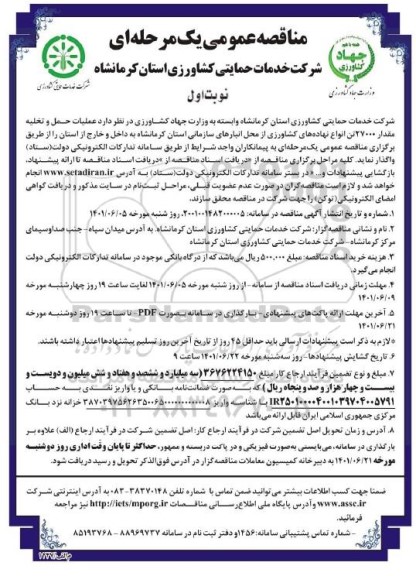 مناقصه عمومی یک مرحله‌ای
شرکت خدمات حمایتی کشاورزی استان کرمانشاه
نوبت اول
جهاد کشاورزی
وزارت جهاد کشاورزی
شرکت خدمات حمایتی کشاورزی
شرکت خدمات حمایتی کشاورزی استان کرمانشاه وابسته به وزارت جهاد کشاورزی در نظر دارد عملیات حمل و تخلیه
مقدار ۲۷۰۰۰تن انواع نهاده‌های کشاورزی از محل انبارهای سازمانی استان کرمانشاه به داخل و خارج از استان را از طریق
برگزاری مناقصه عمومی یک‌مرحله‌ای به پیمانکاران واجد شرایط از طریق سامانه تدارکات الکترونیکی دولت(ستاد)
واگذار نماید. کلیه مراحل برگزاری مناقصه از «دریافت اسناد مناقصه تا ارائه پیشنهاد،
بازگشایی پیشنهادات و... در بستر سامانه تدارکات الکترونیکی دولت(ستاد) به آدرس www.setadiran.ir انجام
خواهد شد و لازم است مناقصه‌گران در صورت عدم عضویت قبلی، مراحل ثبت‌نام در سایت مذکور و دریافت گواهی
امضای الکترونیکی (توکن) را جهت شرکت در مناقصه محقق سازند.
۱. شماره و تاریخ انتشار آگهی مناقصه در سامانه: ۲۰۰۱۰۰۱۴۸۲۰۰۰۰۰۵، روز شنبه مورخه ۱۴۰۱/۰۶/۰۵
۲. نام و نشانی مناقصه‌گزار: شرکت خدمات حمایتی کشاورزی استان کرمانشاه، به آدرس میدان سپاه- جنب صداوسیمای
مرکز کرمانشاه- شرکت خدمات حمایتی کشاورزی استان کرمانشاه
۳. هزینه خرید اسناد مناقصه: مبلغ ۵۰۰,۰۰۰ ریال می‌باشد که از درگاه بانکی موجود در سامانه تدارکات الکترونیکی دولت
انجام می‌گیرد.
۴. مهلت زمانی دریافت اسناد مناقصه از سامانه - از روز شنبه مورخه ۱۴۰۱/۰۶/۰۵ لغایت ساعت ۱۹ روز چهارشنبه مورخه
۱۴۰۱/۰۶/۰۹
۵. آخرین مهلت ارائه پاکت‌های پیشنهادی - بارگذاری در سامانه بصورت PDF - تا ساعت ۱۹ روز دوشنبه مورخه
۱۴۰۱/۰۶/۲۱
*لازم به ذکر است پیشنهادات ارسالی باید حداقل ۴۵ روز از تاریخ آخرین روز تسلیم پیشنهادها اعتبار داشته باشند.
۶. تاریخ گشایش پیشنهادها - روز سه‌شنبه مورخه ۱۴۰۱/۰۶/۲۲ ساعت ۹
۷. مبلغ و نوع تضمین فرآیند ارجاع کار مبلغ ۳۶۷۶۲۲۴۱۵۰ (سه میلیارد و ششصد و هفتاد و شش میلیون و دویست و
بیست و چهار هزار و صد و پنجاه ریال) که به صورت ضمانت‌نامه بانکی و یا واریز نقدی به حساب
IR250100004001039704005791 با شناسه واریز خزانه نزد بانک
مرکزی جمهوری اسلامی ایران قابل ارائه می‌باشد
۸. آدرس و زمان تحویل اصل تضمین شرکت در فرآیند ارجاع کار: اصل تضمین شرکت در فرآیند ارجاع (الف) علاوه بر
بارگذاری در سامانه، می‌بایستی به‌صورت فیزیکی و در پاکت دربسته و ممهور، حداکثر تا پایان وقت اداری روز دوشنبه
مورخه ۱۴۰۱/۰۶/۲۱ به دبیرخانه کمیسیون معاملات مناقصه‌گزار در آدرس فوق‌الذکر تحویل و رسید دریافت شود.
ضمنا جهت کسب اطلاعات بیشتر می‌توانید ضمن تماس با شماره تلفن ۳۸۳۷۰۱۴۸-۰۸۳ به آدرس اینترنتی شرکت
www.assc.ir و آدرس پایگاه ملی اطلاع‌رسانی مناقصات http://iets/mporg.ir نیز مراجعه
فرمائید.
- شماره تماس پشتیبانی سامانه: ۱۴۵۶ و دفتر ثبت نام در سامانه ۸۸۹۶۹۷۳۷ - ۸۵۱۹۳۷۶۸